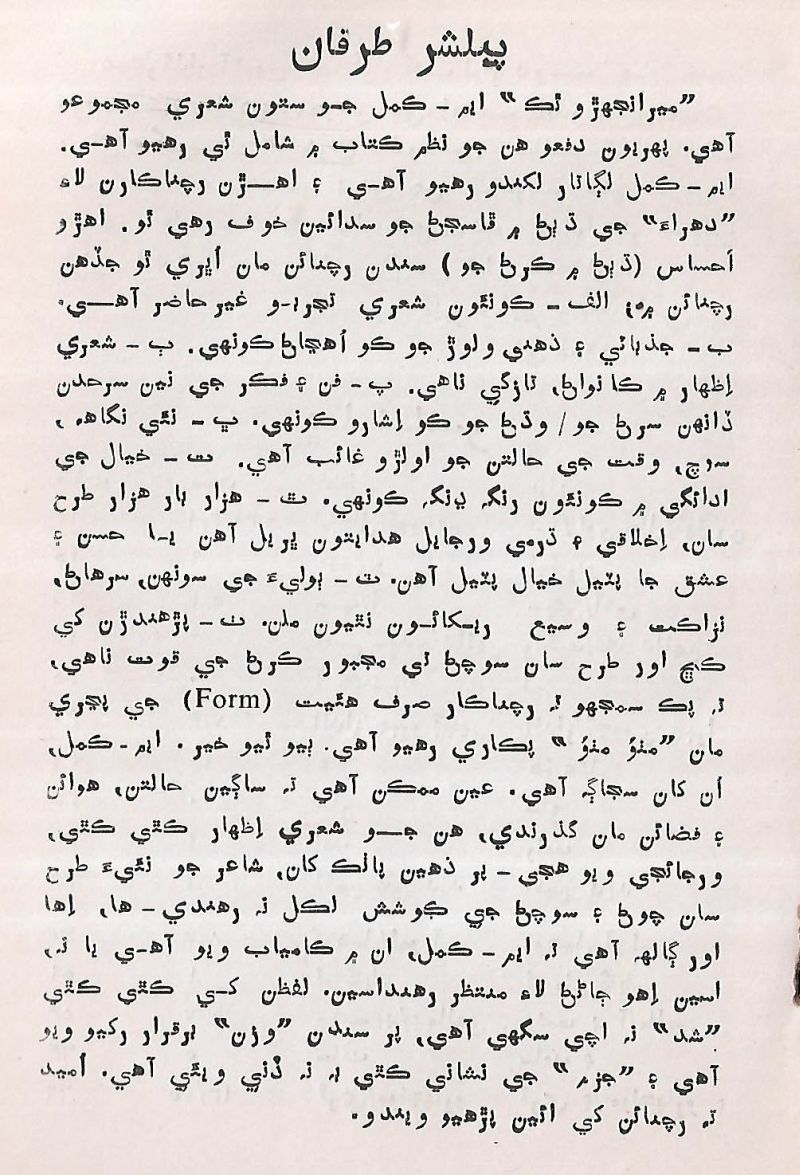 پبلشر طرفان
”ميرانجهڙو ٿڪ“ ايم - ڪمل جو ستون شعري مجموعو
آهي. پهريون دفعو هن جو نظم ڪتاب ۾ شامل ٿي رهيو آهي.
ايم - ڪمل لڳاتار لکندو رهيو آهي ۽ اهڙن رچناڪارن لاءِ
”دهراءَ“ جي ڌٻڻ ۾ ڦاسجڻ جو سدائين خوف رهي ٿو. اهڙو
احساس (ڌٻڻ ۾ ڪرڻ جو) سندن رچنائن مان اُڀري ٿو جڏهن
رچنائن ۾؛ الف - ڪوئنون شعري تجربو غير حاضر آهي.
ب - جذباتي ۽ ذهني ولوڙ جو ڪو اُهڃاڻ ڪونهي. ٻ - شعري
اِظهار ۾ ڪا نواڻ، تازگي ناهي. پ - فن ۽ فڪر جي نين سرحدن
ڏانهن سرڻ جو / وڌڻ جو ڪو اِشارو ڪونهي. ڀ - نئي نگاهه،
سوچ، وقت جي حالتن جو اولڙو غائب آهي. ت - خيال جي
ادائگي ۾ ڪونئون رنگ ڍنگ ڪونهي. ٿ - هزار بار هزار طرح
سان، اِخلاقي ۽ ڌرمي ورجايل هدايتون ڀريل آهن يا حسن ۽
عشق جا پٽيل خيال پٽيل آهن. ٽ - ٻوليءَ جي سونهن، سرهاڻ،
نزاڪت ۽ وسيع ريکائون نٿيون ملن. ث - پڙهندڙن کي
ڪڇ اور طرح سان سوچڻ تي مجبور ڪرڻ جي قوت ناهي،
ته پڪ سمجهو ته رچناڪار صرف هئيت (Form) جي پڃري
مان ”مٺوُ مٺوُ“ پڪاري رهيو آهي. ٻيو ٿيو خير. ايم - ڪمل،
اُن کان سجاڳ آهي. عين ممڪن آهي ته ساڳين حالتن، هوائن
۽ فضائن مان گذرندي، هن جو شعري اِظهار ڪٿي ڪٿي،
ورجائجي ويو هجي - پر ذهين پاٺڪ کان، شاعر جو نئيءَ طرح
سان چوڻ ۽ سوچڻ جي ڪوشش لڪل نه رهندي - ها، اِها
اور ڳالهه آهي ته ايم - ڪمل، ان ۾ ڪامياب ويو آهي يا نه،
اسين اِهو ڄاڻڻ لاءِ منتظر رهنداسين. لفظن کي ڪٿي ڪٿي
”شد“ نه اچي سگهي آهي، پر سندن ”وزن“ برقرار رکيو ويو
آهي ۽ ”جزم“ جي نشاني ڪٿي به نه ڏني ويئي آهي. اُميد
ته رچنائن کي ائين پڙهيو ويندو.